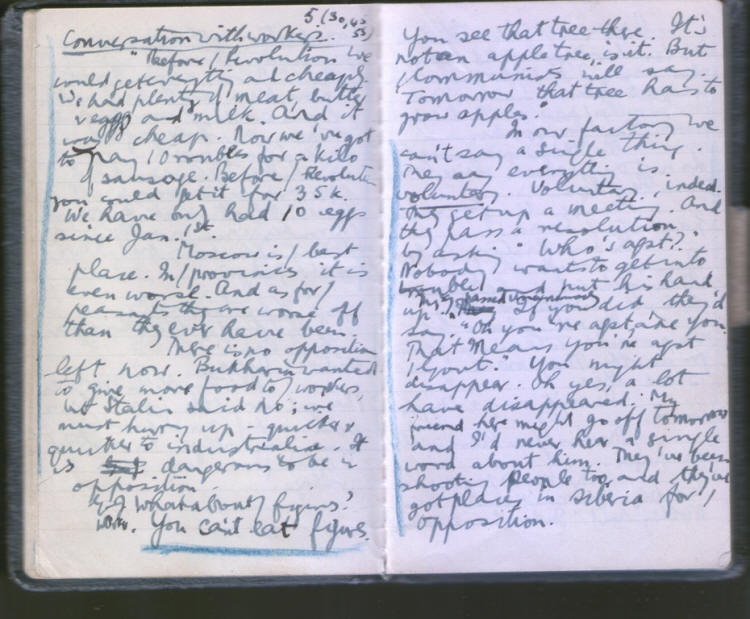 5. (30, 42
Conversation with workers. 55)
"Before / Revolution we
could get everything and cheaply.
We had plenty of meat, butter
eggs and milk. And it
was cheap. Now we've got
to pay 10 roubles for a kilo
of sausage. Before / Revolution
you could get it for 35k.
We have only had 10 eggs
since Jan. 1st.
Moscow is / best
place. In / provinces it is
even worse. And as for /
peasants they are worse off
than they ever have been.
There is no opposition
left now. Bukharin wanted
to give more food to / workers,
but Stalin said no; we
must hurry up - quicker &
quicker to industrialise. It
is dangerous to be in
opposition.
What about / figures?
You can't eat figures.
You see that tree there. It's
not an apple tree, is it. But
/ Communists will say.
Tomorrow that tree has to
grow apples."
In our factory we
can't say a single thing.
They say everything is
voluntary. Voluntary, indeed.
They get up a meeting. And
they pass a resolution
by asking "Who's agst?"
Nobody wants to get into
trouble and put his hand
up. "Passed unanimously"
If you did they'd
say "Oh you're agst are you.
That means you're agst
/ Govt." You might
disappear. Oh yes, a lot
have disappeared. My
friend here might go off tomorrow
and I'd never hear a single
word about him. They've been
shooting people too and they've
got places in Siberia for /
opposition.